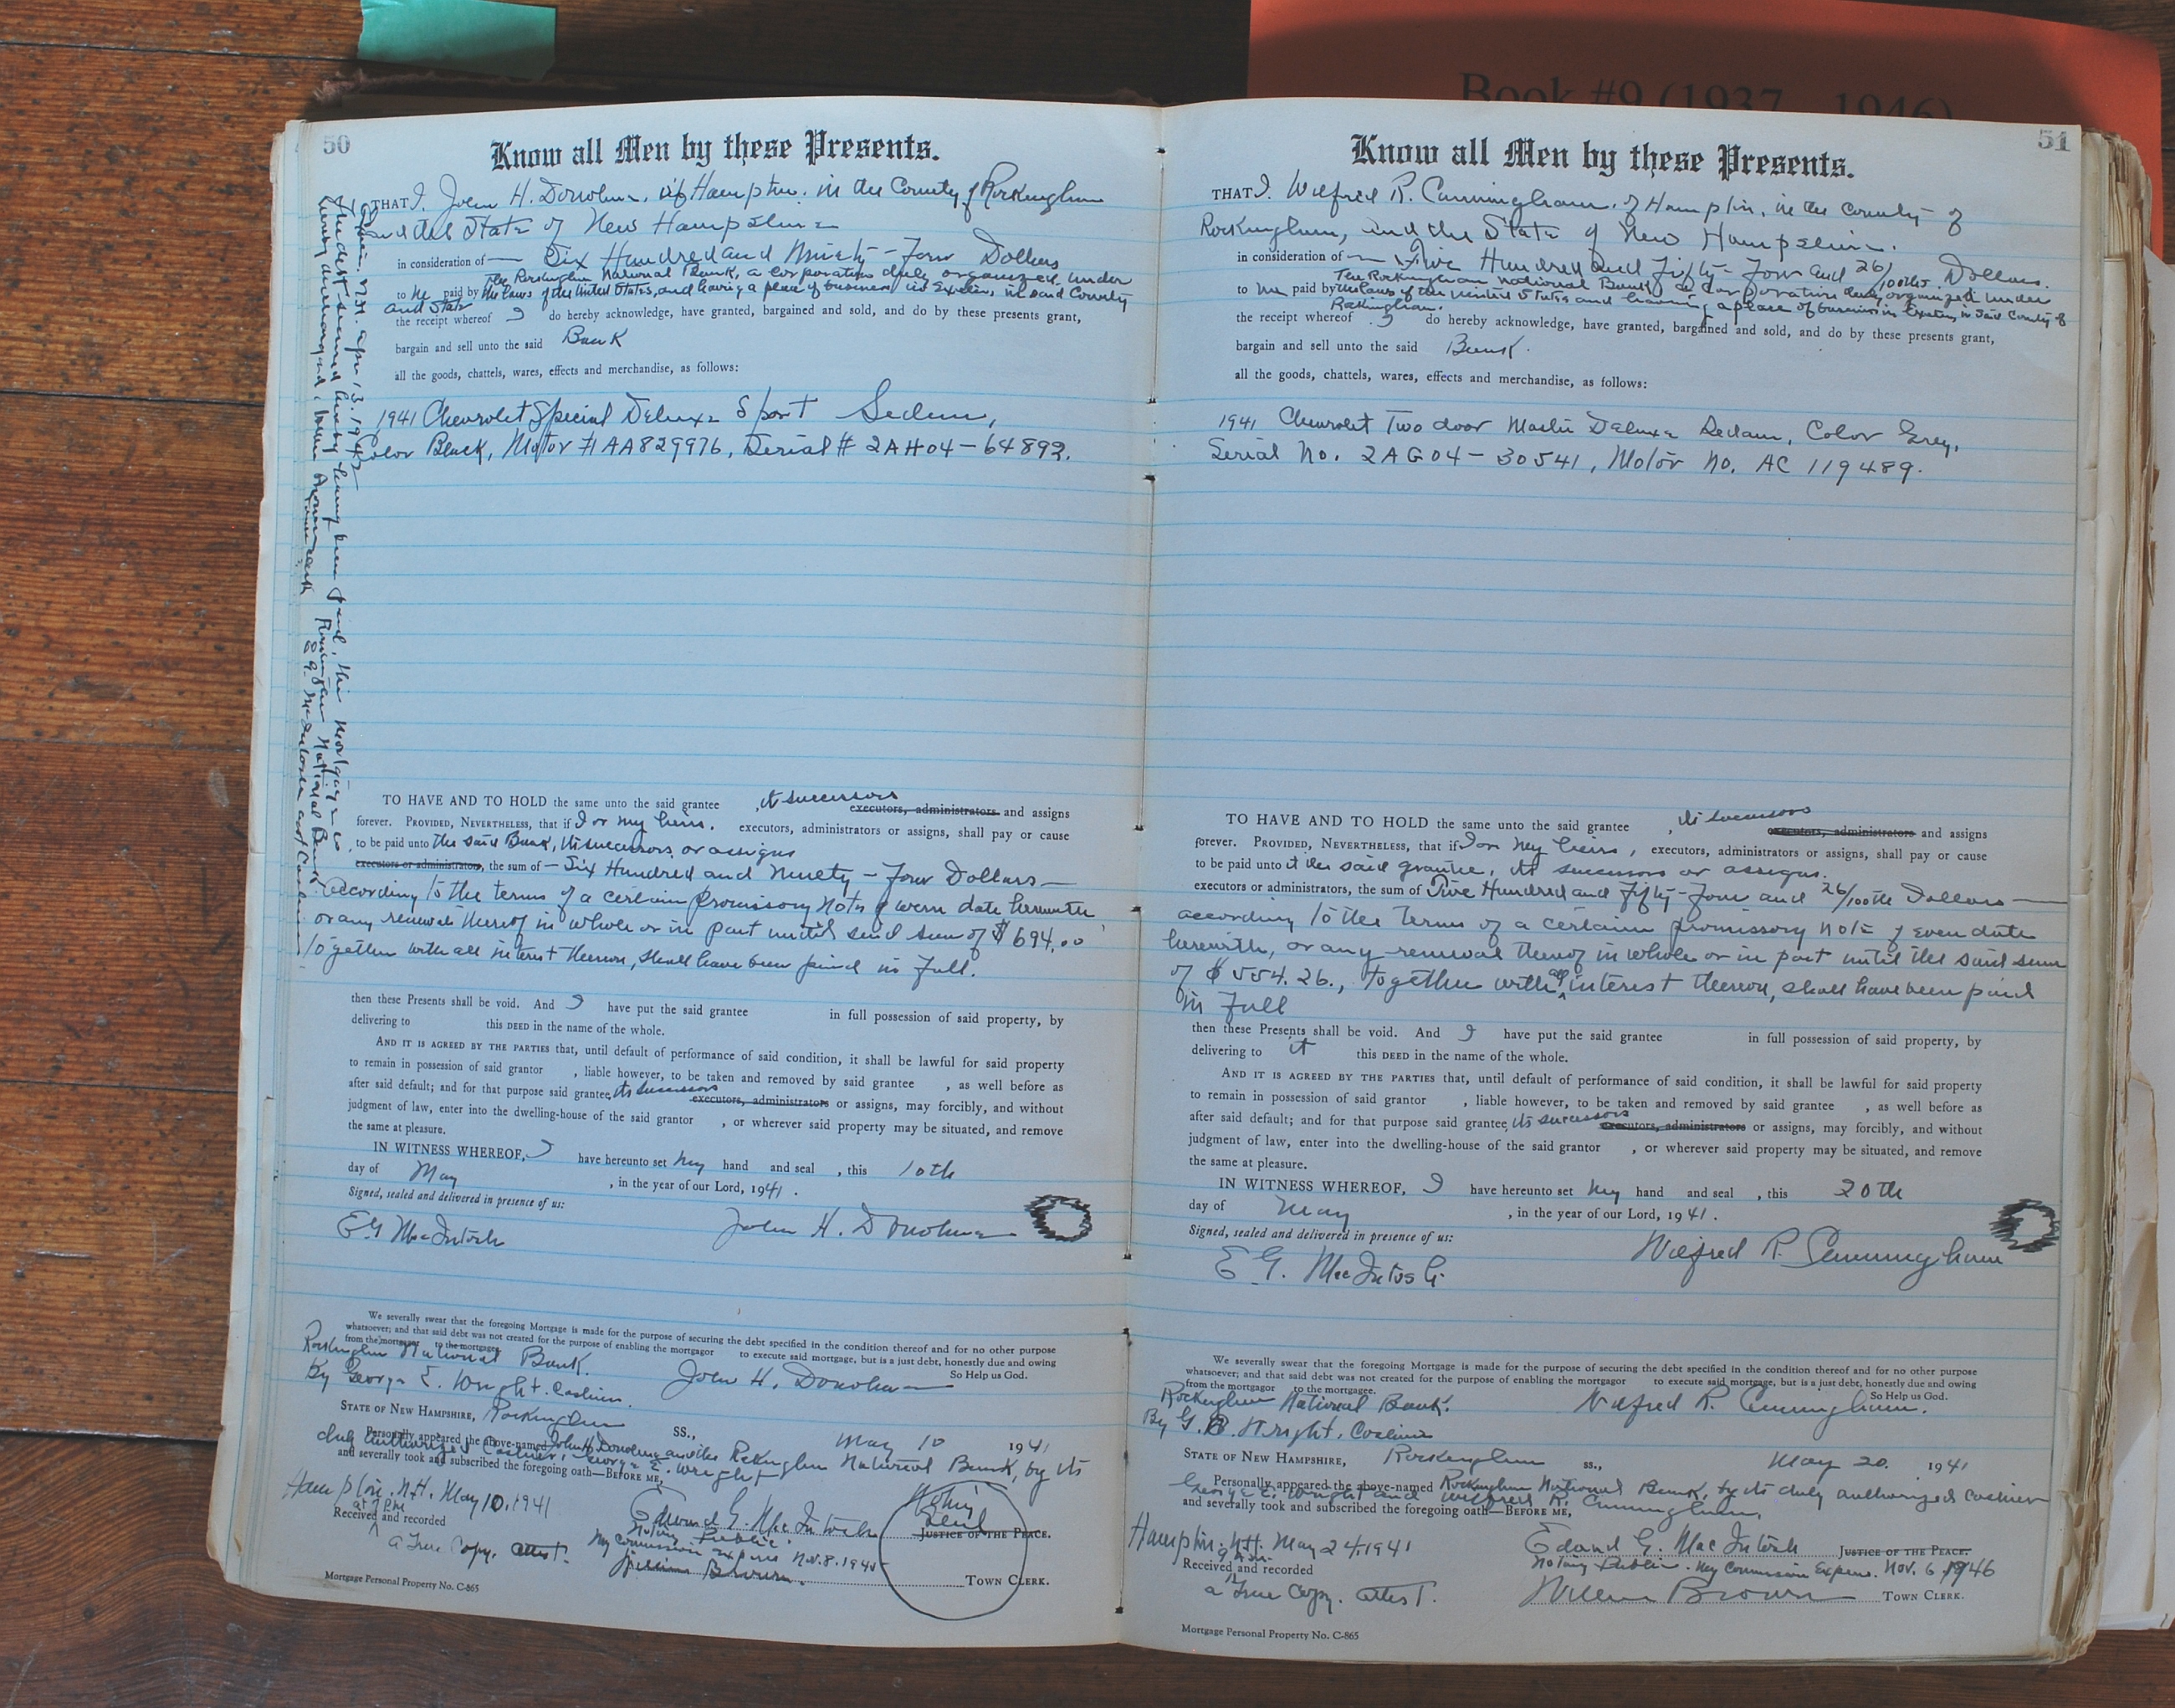 Book #9 (1937 - 1946)
50
Know all Men by these Presents.
THAT I, John H. Donohue, of Hampton, in the County of Rockingham
and the State of New Hampshire
in consideration of — Six Hundred and Ninety-Four Dollars
to me paid by The Rockingham National Bank, a corporation duly organized under
the laws of the United States, and having a place of business in Exeter, in said County
and State
the receipt whereof I do hereby acknowledge, have granted, bargained and sold, and do by these presents grant,
bargain and sell unto the said Bank
all the goods, chattels, wares, effects and merchandise, as follows:
1941 Chevrolet Special Deluxe Sport Sedan,
Color Black, Motor # AA829976, Serial # 2AH04-64892.
TO HAVE AND TO HOLD the same unto the said grantee, its successors executors, administrators and assigns
forever. PROVIDED, NEVERTHELESS, that if I or my heirs, executors, administrators or assigns, shall pay or cause
to be paid unto the said Bank, its successors or assigns
executors or administrators, the sum of — Six Hundred and Ninety-Four Dollars —
according to the terms of a certain promissory note of even date herewith
or any renewals thereof in whole or in part until said sum of $694.00
together with all interest thereon, shall have been paid in full.
then these Presents shall be void. And I have put the said grantee in full possession of said property, by
delivering to this DEED in the name of the whole.
AND IT IS AGREED BY THE PARTIES that, until default of performance of said condition, it shall be lawful for said property
to remain in possession of said grantor , liable however, to be taken and removed by said grantee , as well before as
after said default; and for that purpose said grantee, its successors executors, administrators or assigns, may forcibly, and without
judgment of law, enter into the dwelling-house of the said grantor , or wherever said property may be situated, and remove
the same at pleasure.
IN WITNESS WHEREOF, I have hereunto set my hand and seal , this 10th
day of May , in the year of our Lord, 1941.
Signed, sealed and delivered in presence of us:
E G MacIntosh John H. Donohue
We severally swear that the foregoing Mortgage is made for the purpose of securing the debt specified in the condition thereof and for no other purpose
whatsoever; and that said debt was not created for the purpose of enabling the mortgagor to execute said mortgage, but is a just debt, honestly due and owing
from the mortgagor to the mortgagee. So Help us God.
Rockingham National Bank.
By George E. Wright. Cashier. John H. Donohue
STATE OF NEW HAMPSHIRE, Rockingham SS., May 10 1941
Personally appeared the above-named John H. Donohue and the Rockingham National Bank, by its
duly authorized Cashier, George E. Wright
and severally took and subscribed the foregoing oath—BEFORE ME,
Hampton. N.H. May 10, 1941
at 7 PM
Received and recorded Edward G. MacIntosh JUSTICE OF THE PEACE.
Notary Seal
Notary Public
My Commission Expires Nov. 8. 1945
a True Copy. attest. William Brown. TOWN CLERK.
Mortgage Personal Property No. C-865
Exeter. N.H. Apr. 13. 1942
The debt secured hereby having been paid, this mortgage is
hereby discharged.
Rockingham National Bank
E G. MacIntosh asst Cashier
51
Know all Men by these Presents.
THAT I, Wilfred R. Cunningham, of Hampton, in the County of
Rockingham, and the State of New Hampshire.
in consideration of — Five Hundred and Fifty-Four and 26/100ths Dollars.
to me paid by The Rockingham National Bank a corporation duly organized under
the laws of the United States and having a place of business in Exeter, in said County of
Rockingham.
the receipt whereof I do hereby acknowledge, have granted, bargained and sold, and do by these presents grant,
bargain and sell unto the said Bank.
all the goods, chattels, wares, effects and merchandise, as follows:
1941 Chevrolet Two door Master Deluxe Sedan, Color Grey,
Serial No. 2AG04-30541, Motor No. AC 119489.
TO HAVE AND TO HOLD the same unto the said grantee , its successors executors, administrators and assigns
forever. PROVIDED, NEVERTHELESS, that if I or my heirs, executors, administrators or assigns, shall pay or cause
to be paid unto it the said grantee, its successors or assigns.
executors or administrators, the sum of Five Hundred and Fifty-Four and 26/100th Dollars —
according to the terms of a certain promissory note of even date
herewith, or any renewal thereof in whole or in part until the said sum
of $554.26., together with all interest thereon, shall have been paid
in full
then these Presents shall be void. And I have put the said grantee in full possession of said property, by
delivering to it this DEED in the name of the whole.
AND IT IS AGREED BY THE PARTIES that, until default of performance of said condition, it shall be lawful for said property
to remain in possession of said grantor , liable however, to be taken and removed by said grantee , as well before as
after said default; and for that purpose said grantee, its successors executors, administrators or assigns, may forcibly, and without
judgment of law, enter into the dwelling-house of the said grantor , or wherever said property may be situated, and remove
the same at pleasure.
IN WITNESS WHEREOF, I have hereunto set my hand and seal , this 20th
day of May , in the year of our Lord, 1941.
Signed, sealed and delivered in presence of us:
E G. MacIntosh Wilfred R. Cunningham
We severally swear that the foregoing Mortgage is made for the purpose of securing the debt specified in the condition thereof and for no other purpose
whatsoever; and that said debt was not created for the purpose of enabling the mortgagor to execute said mortgage, but is a just debt, honestly due and owing
from the mortgagor to the mortgagee. So Help us God.
Rockingham National Bank. Wilfred R. Cunningham.
By G. E. Wright, Cashier
STATE OF NEW HAMPSHIRE, Rockingham ss., May 20. 1941
Personally appeared the above-named Rockingham National Bank, by its duly authorized cashier
George E. Wright and Wilfred R. Cunningham,
and severally took and subscribed the foregoing oath—BEFORE ME,
Hampton. N.H. May 24, 1941 Edward G. MacIntosh JUSTICE OF THE PEACE.
9 A.M.
Received and recorded Notary Public. My Commission Expires. Nov. 6 1946
a True Copy. attest. William Brown TOWN CLERK.
Mortgage Personal Property No. C-865